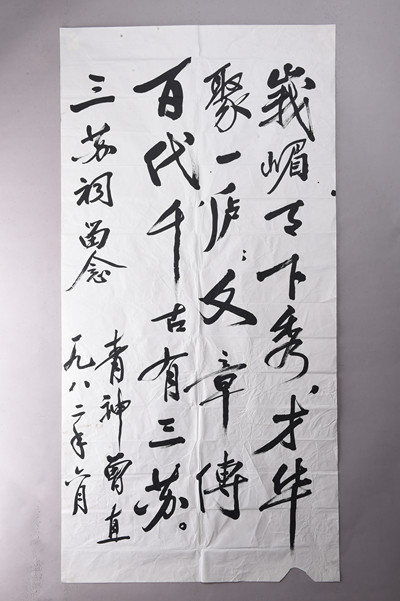 峩嵋天下秀，才华
聚一庐；文章傳
百代千古有三苏。
三苏祠留念
青神曾直
一九八二年六月